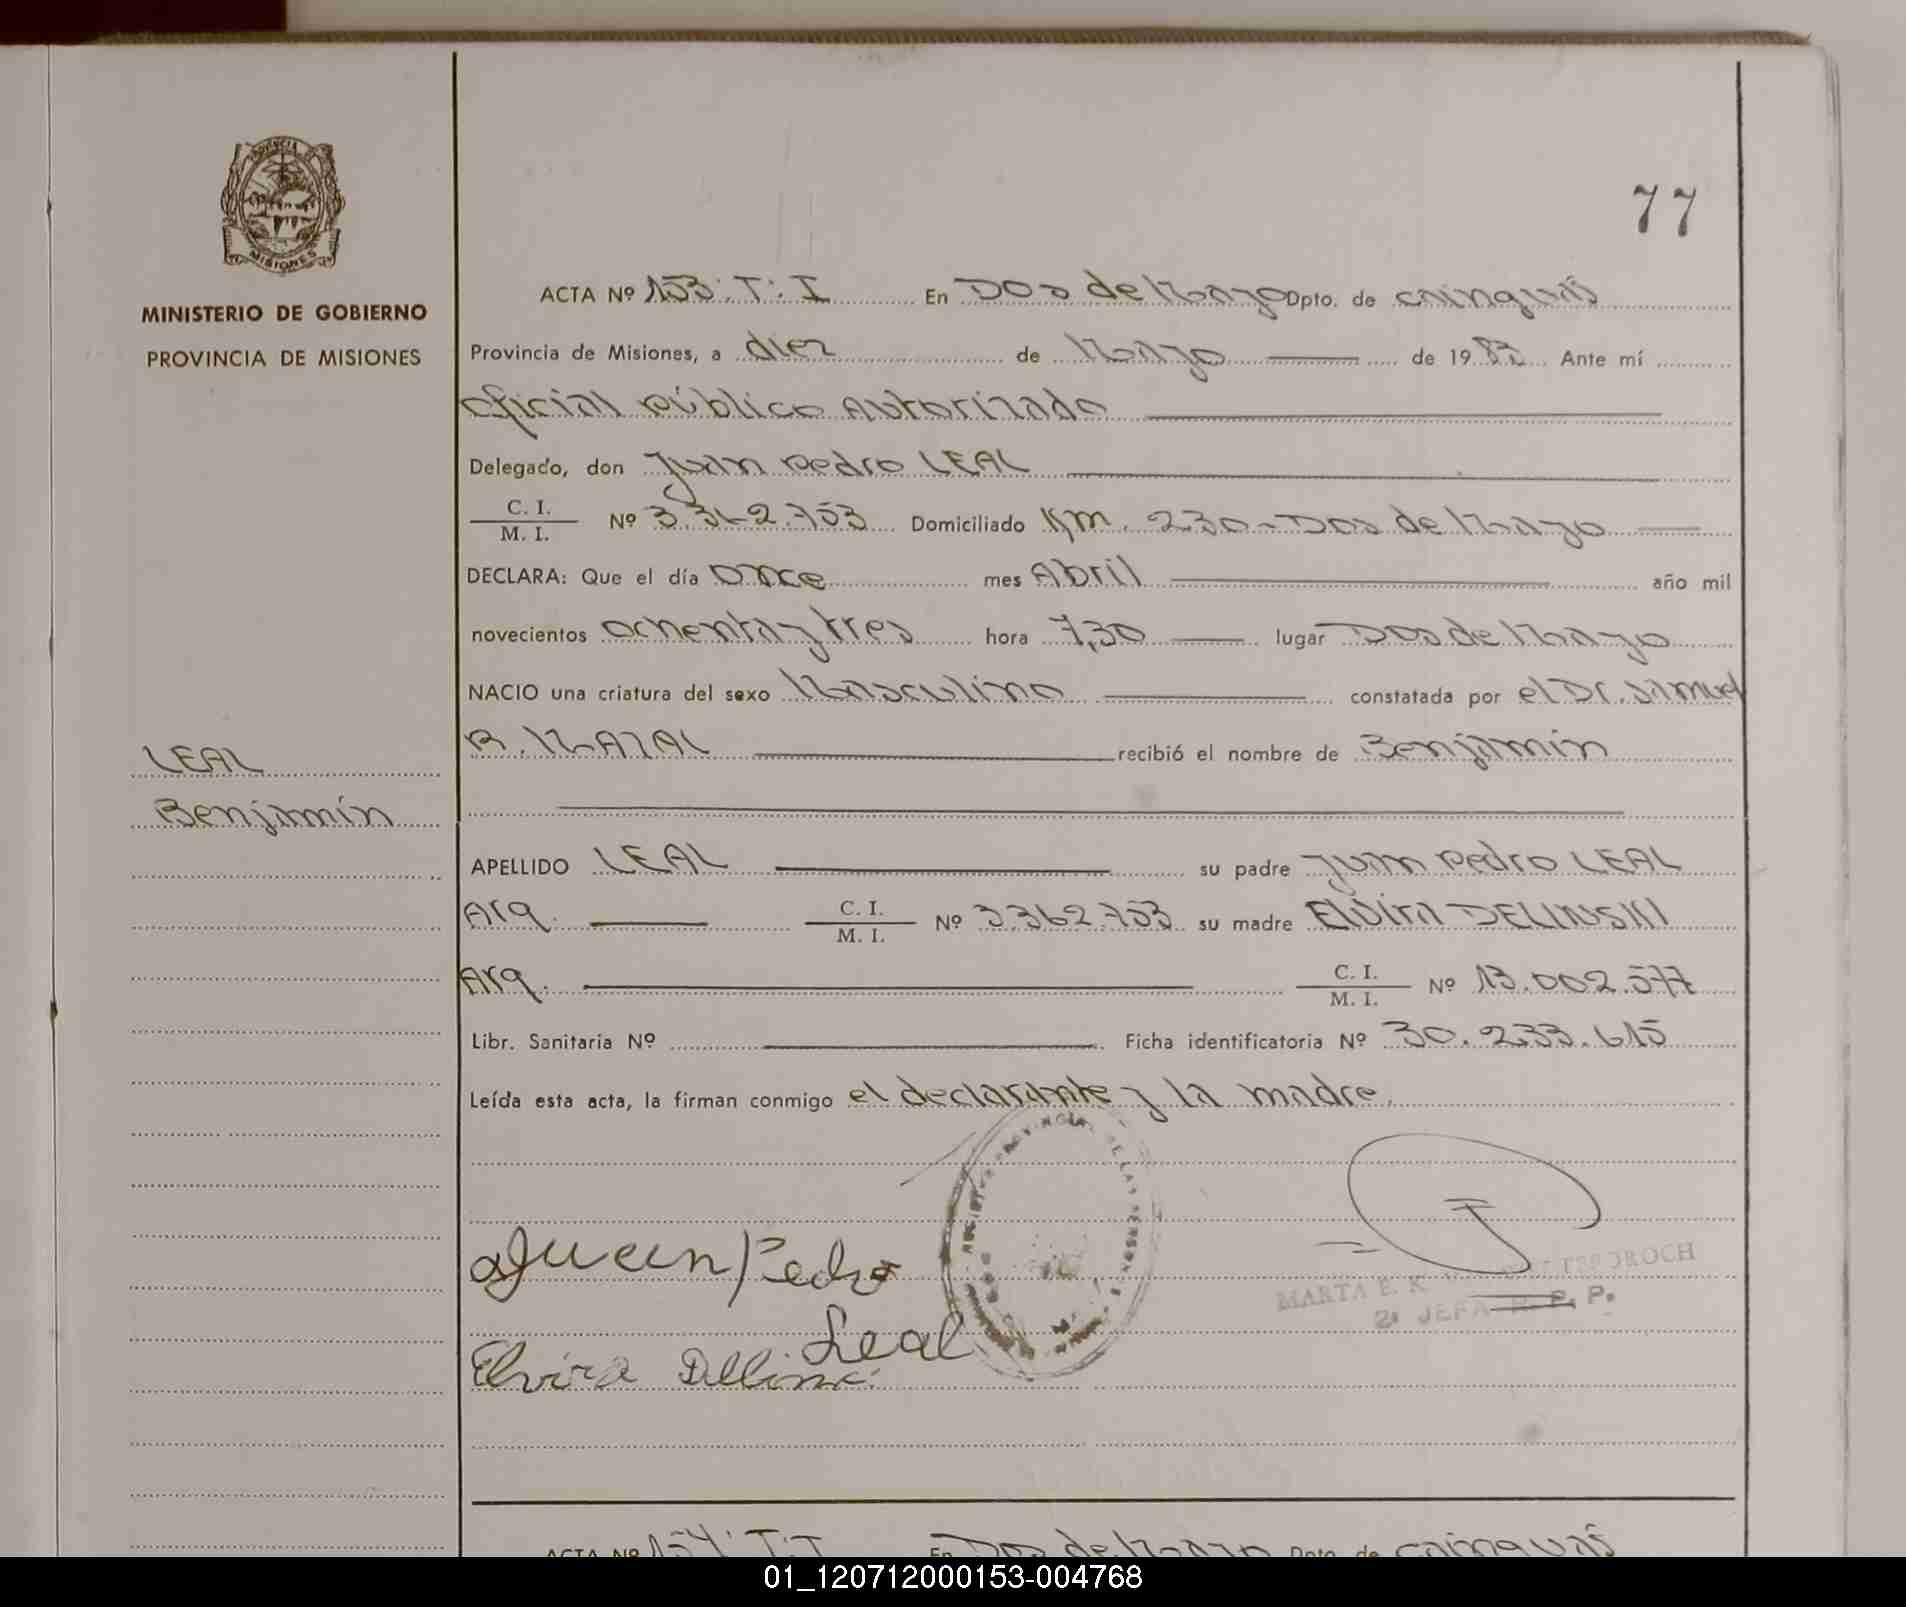 PROVINCIA DE
MISIONES
MINISTERIO DE GOBIERNO
PROVINCIA DE MISIONES
77
ACTA Nº 153. T: I En Dos de Mayo Dpto. de Cainguás
Provincia de Misiones, a diez de Mayo de 1983 Ante mí
oficial público Autorizado
Delegado, don Juan Pedro LEAL
C. I.
M. I. Nº 3.362.753 Domiciliado Km. 230 - Dos de Mayo
DECLARA: Que el día Once mes Abril año mil
novecientos ochenta y tres hora 7,30 lugar Dos de Mayo
NACIO una criatura del sexo Masculino constatada por el Dr. Samuel
R. MAZAL recibió el nombre de Benjamín
LEAL
Benjamín
APELLIDO LEAL su padre Juan Pedro LEAL
Arg. C. I.
M. I. Nº 3.362.753 su madre Elvira DELINSKI
Arg. C. I.
M. I. Nº 13.002.577
Libr. Sanitaria Nº Ficha identificatoria Nº 30.233.615
Leída esta acta, la firman conmigo el declarante y la madre.
Juan Pedro
Leal
Elvira
MARTA E. K.
2ª JEFA R. P. P.
ACTA Nº 154: T: I En Dos de Mayo Dpto. de Cainguás
01_120712000153-004768